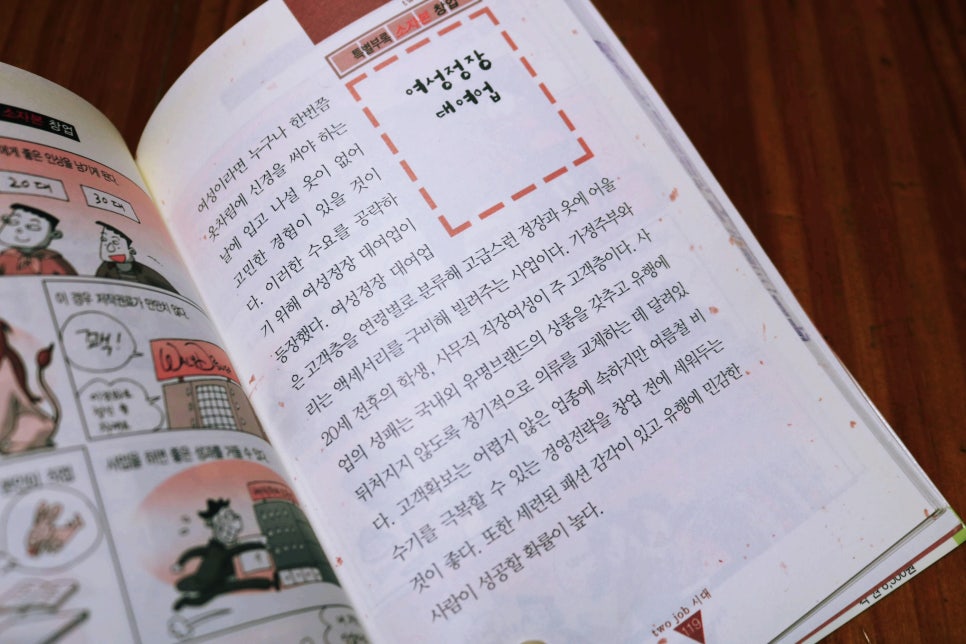 소자본 창업
에게 좋은 인상을 남기게 된다.
20대
30대
이 경우 저작권료가 만만치 않다.
사업을 하면 좋은 성과를 거둘 수 있다.
특별부록 소자본 창업
여성정장
대여업
여성이라면 누구나 한번쯤
옷차림에 신경을 써야 하는
날에 입고 나설 옷이 없어
고민한 경험이 있을 것이
다. 이러한 수요를 공략하
기 위해 여성정장 대여업이
등장했다. 여성정장 대여업
은 고객층을 연령별로 분류해 고급스런 정장과 옷에 어울
리는 액세서리를 구비해 빌려주는 사업이다. 가정주부와
20세 전후의 학생, 사무직 직장여성이 주 고객층이다. 사
업의 성패는 국내외 유명브랜드의 상품을 갖추고 유행에
뒤처지지 않도록 정기적으로 의류를 교체하는 데 달려있
다. 고객확보는 어렵지 않은 업종에 속하지만 여름철 비
수기를 극복할 수 있는 경영전략을 창업 전에 세워두는
것이 좋다. 또한 세련된 패션 감각이 있고 유행에 민감한
사람이 성공할 확률이 높다.
two job 시대
119